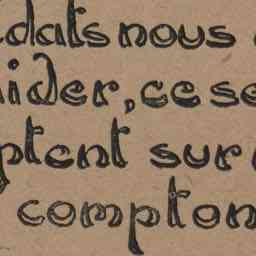 dats nous
ider, ce se
ptent sur
compton